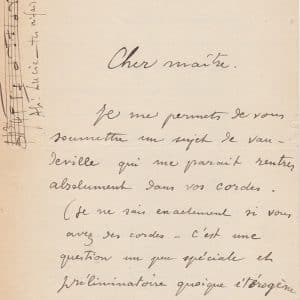 Ah! Lucie – tu m'as
Cher maître.
Je me permets de vous
soumettre un sujet de vau-
deville qui me parait rentrer
absolument dans vos cordes.
(Je ne sais exactement si vous
avez des cordes – c'est une
question un peu spéciale et
préliminatoire quoique itérogène